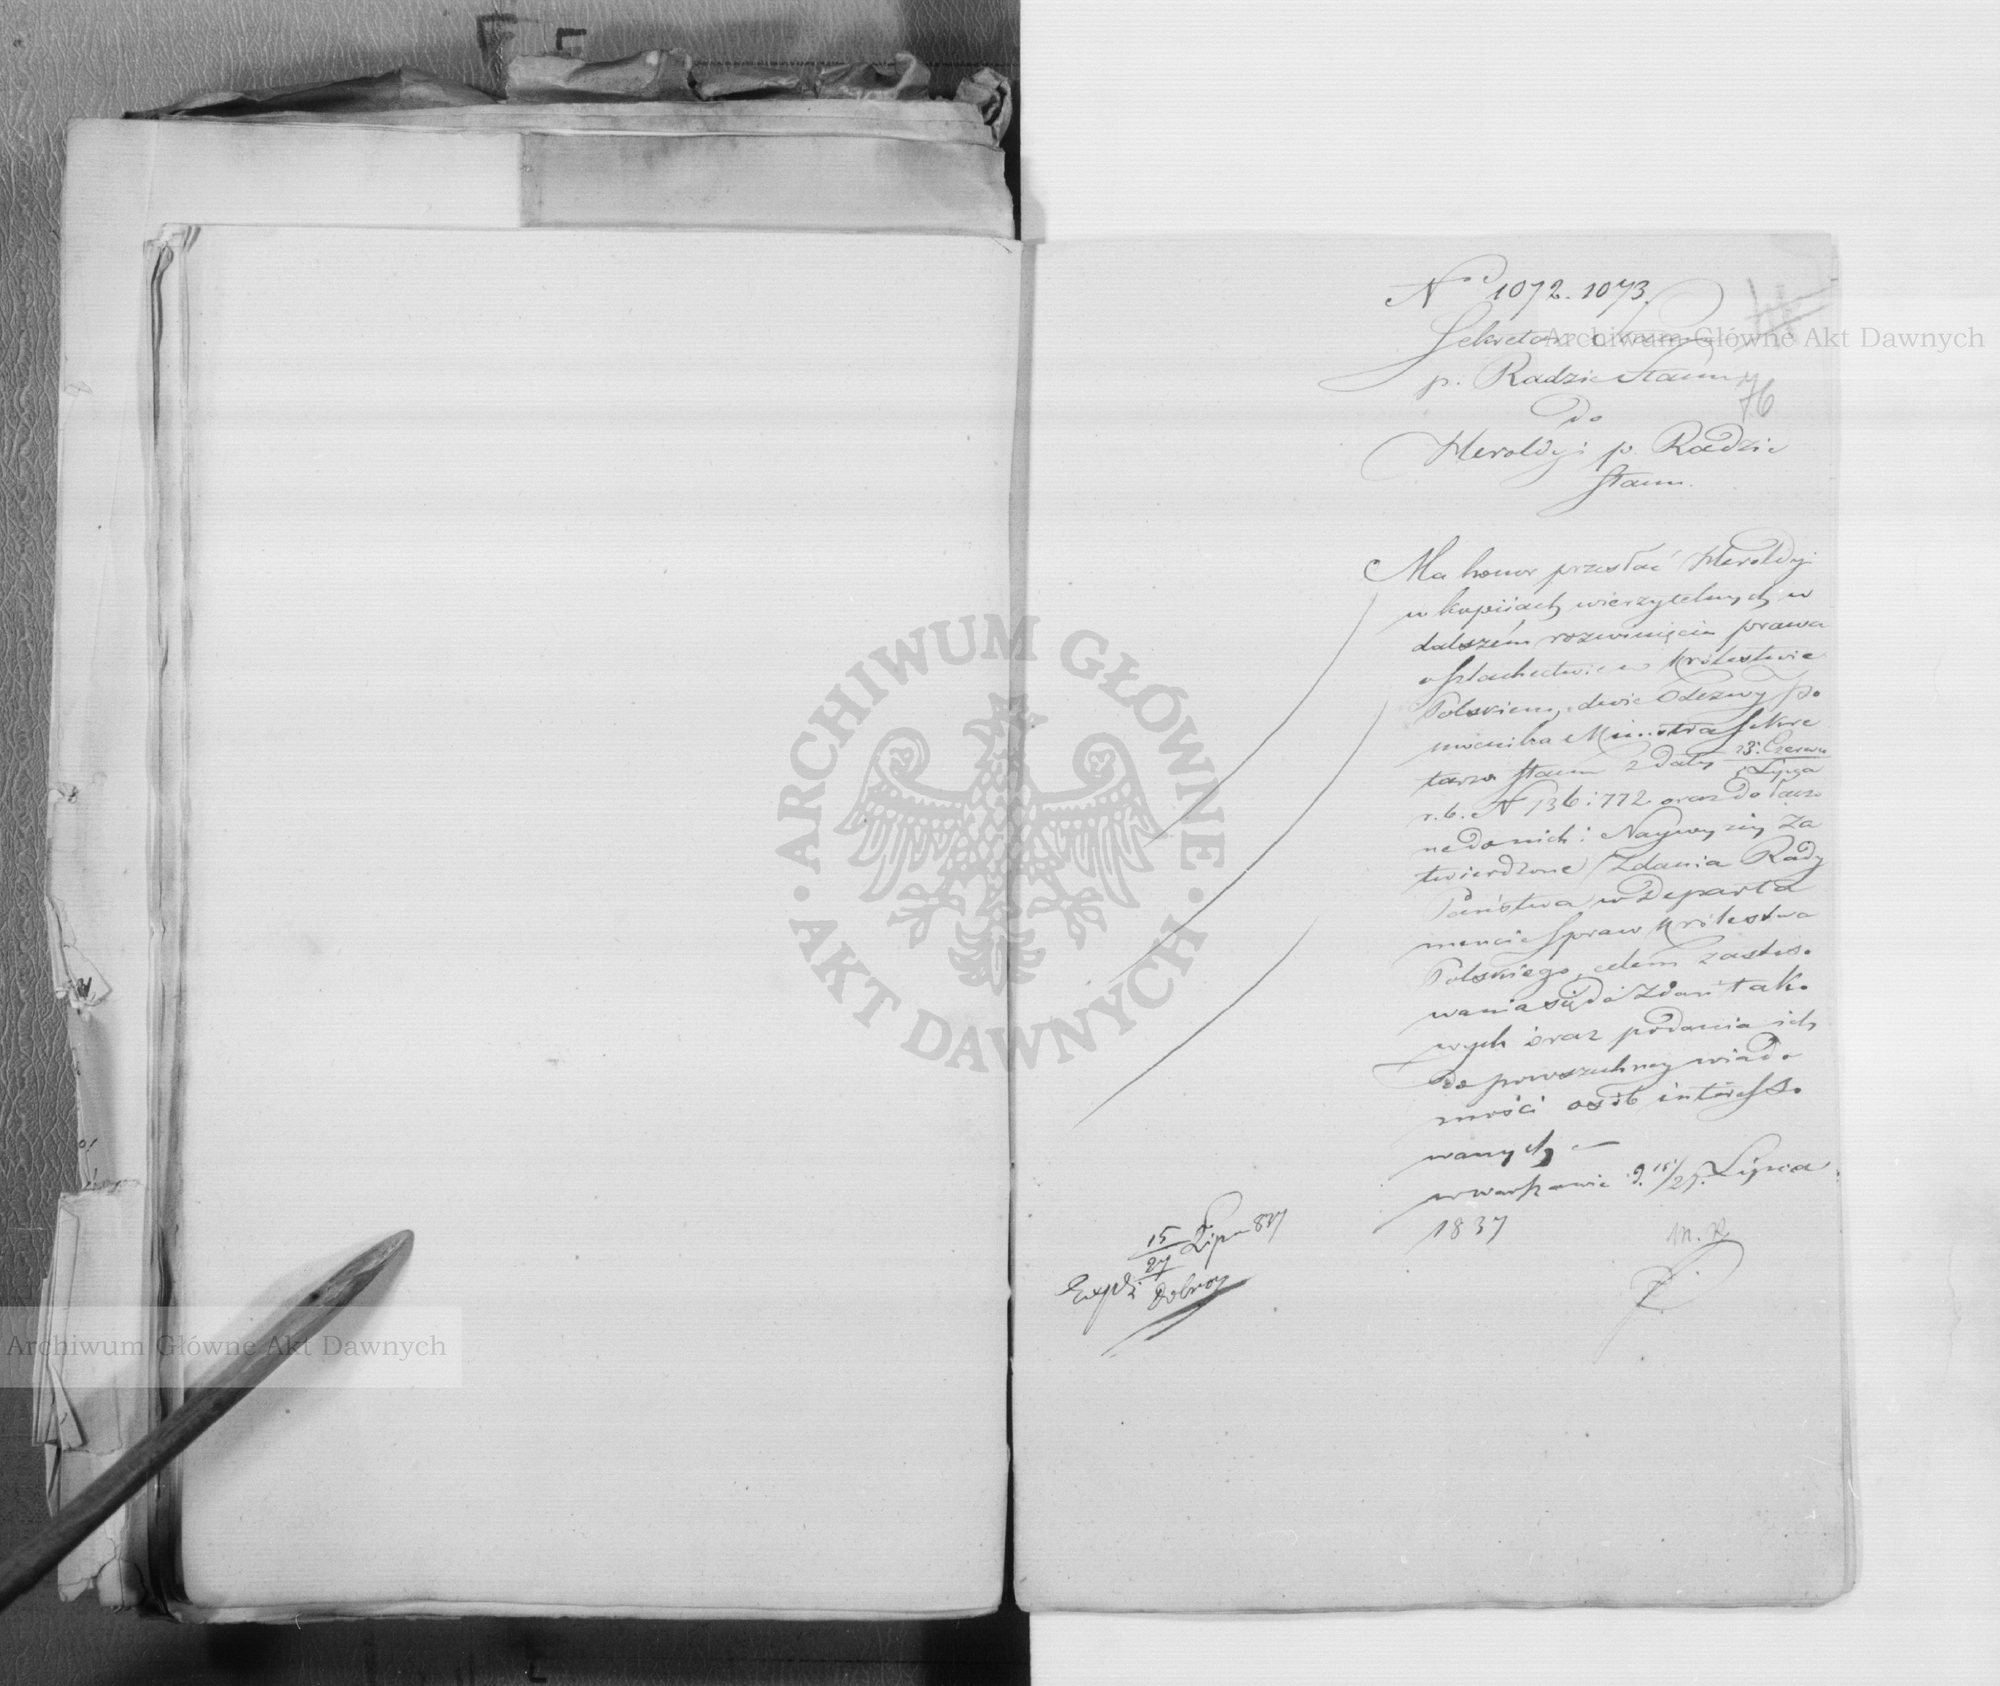 No 1072. 1073.
Sekretarz Stanu
p. Radzie Stanu
76
do
Heroldyi p. Radzie
Stanu.
Ma honor przesłać Heroldyi
w kopiiach wierzytelnych w
dalszém rozwinięciu prawa
o szlachectwie w Królestwie
Polskiem, dwie Odezwy Po
mocnika Ministra Sekre
tarza Stanu z daty 23 Czerwca / Lipca
r. b. N 736 i 772 oraz dołączo
ne do nich: Naywyżey Za
twierdzone Zdania Rady
Państwa w Departa
mencie Spraw Królestwa
Polskiego, celem zastoso
wania się do Zdań tako
wych oraz podania ich
do powszechney wiado
mości osób interesso
wanych –
w Warszawie d. 15/27. Lipca
1837
15/27 Lipca 837
Expdi Dobroy
Archiwum Główne Akt Dawnych
ARCHIWUM GŁÓWNE
AKT DAWNYCH
Archiwum Główne Akt Dawnych